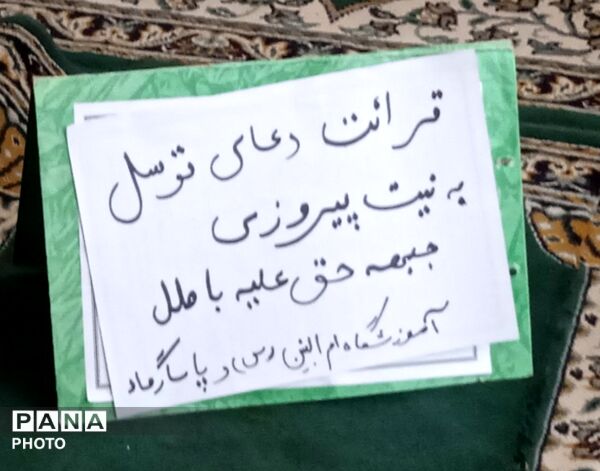 قرائت دعای توسل
به نیت پیروزی
جبهه حق علیه باطل
آموزشگاه ام البنین (س) و پاسارگاد
PANA
PHOTO